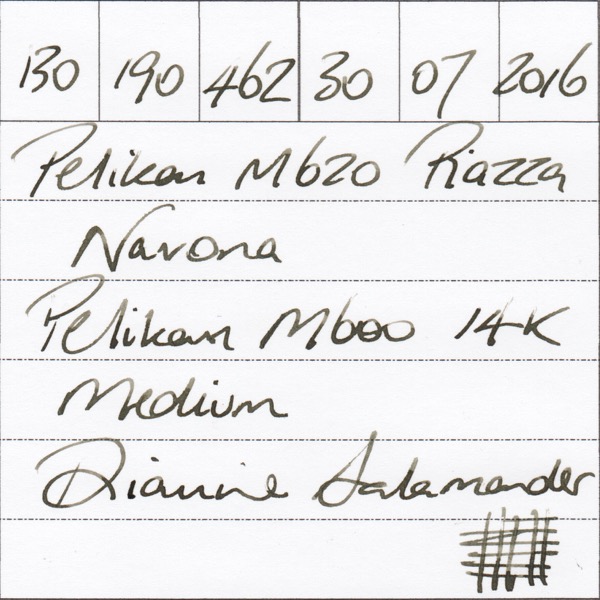 130 190 462 30 07 2016
Pelikan M620 Piazza
Navona
Pelikan M600 14K
Medium
Diamine Salamander